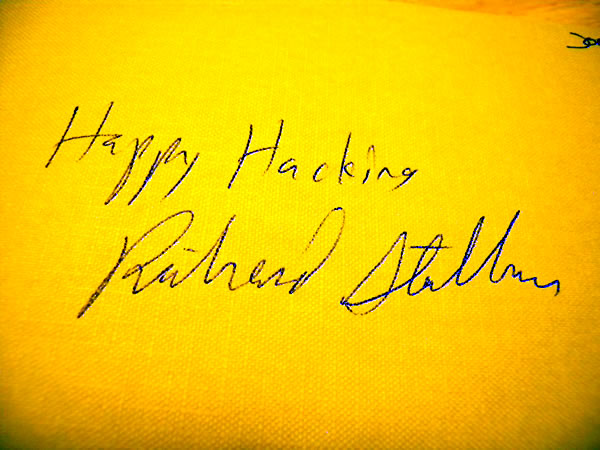 Happy Hacking
Richard Stallman